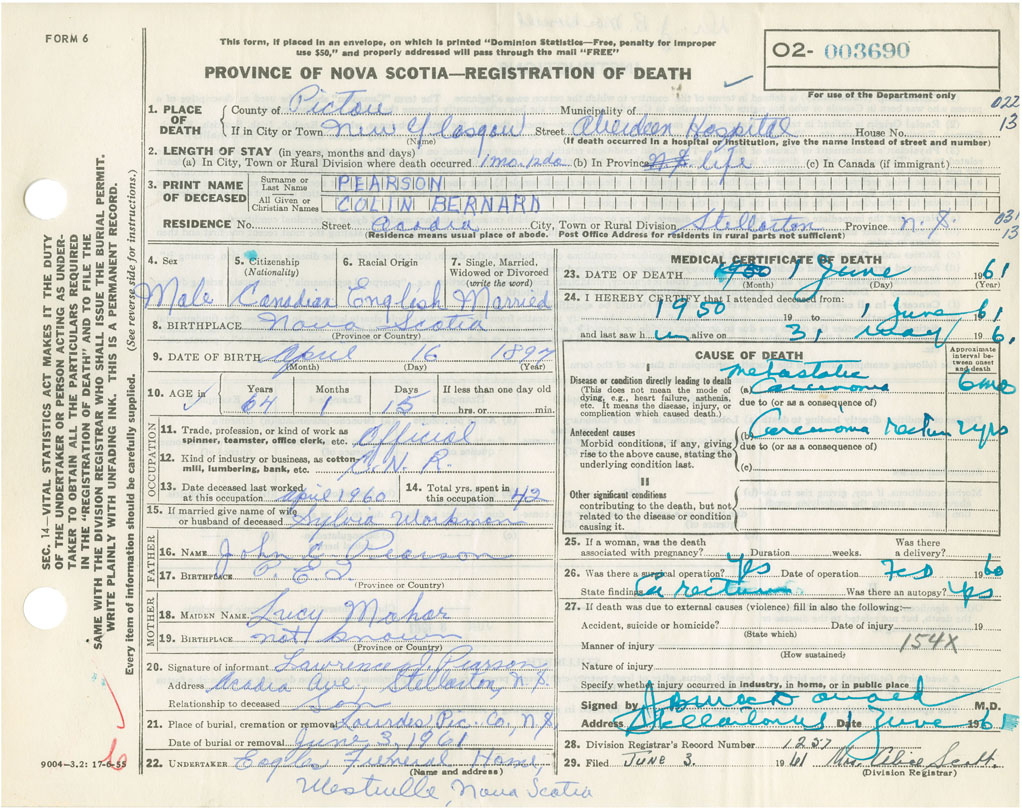 FORM 6
This form, if placed in an envelope, on which is printed "Dominion Statistics—Free, penalty for improper
use $50," and properly addressed will pass through the mail "FREE"
PROVINCE OF NOVA SCOTIA—REGISTRATION OF DEATH
O2- 003690
For use of the Department only
022
13
1. PLACE OF DEATH
County of Pictou Municipality of
If in City or Town New Glasgow Street Aberdeen Hospital House No.
(Name) (If death occurred in a hospital or institution, give the name instead of street and number)
2. LENGTH OF STAY (in years, months and days)
(a) In City, Town or Rural Division where death occurred 1 mo. (b) In Province N.S. life (c) In Canada (if immigrant)
3. PRINT NAME OF DECEASED
Surname or Last Name PEARSON
All Given or Christian Names COLIN BERNARD
RESIDENCE No. Street Acadia City, Town or Rural Division Stellarton Province N.S.
(Residence means usual place of abode. Post Office Address for residents in rural parts not sufficient)
031
13
SEC. 14—VITAL STATISTICS ACT MAKES IT THE DUTY
OF THE UNDERTAKER OR PERSON ACTING AS UNDER-
TAKER TO OBTAIN ALL THE PARTICULARS REQUIRED
IN THE "REGISTRATION OF DEATH" AND TO FILE THE
SAME WITH THE DIVISION REGISTRAR WHO SHALL ISSUE THE BURIAL PERMIT.
WRITE PLAINLY WITH UNFADING INK. THIS IS A PERMANENT RECORD.
Every item of information should be carefully supplied. (See reverse side for instructions.)
4. Sex
5. Citizenship (Nationality)
6. Racial Origin
7. Single, Married, Widowed or Divorced (write the word)
Male Canadian English Married
8. BIRTHPLACE Nova Scotia
(Province or Country)
9. DATE OF BIRTH April 16 1897
(Month) (Day) (Year)
10. AGE in Years Months Days If less than one day old
64 1 15 hrs. or min.
OCCUPATION
11. Trade, profession, or kind of work as
spinner, teamster, office clerk, etc. Official
12. Kind of industry or business, as cotton-
mill, lumbering, bank, etc. C.N.R.
13. Date deceased last worked
at this occupation April 1960
14. Total yrs. spent in
this occupation 42
15. If married give name of wife
or husband of deceased Sylvia Workman
FATHER
16. NAME John E Pearson
17. BIRTHPLACE P.E.I
(Province or Country)
MOTHER
18. MAIDEN NAME Lucy Mahar
19. BIRTHPLACE not known
(Province or Country)
20. Signature of informant Lawrence J. Pearson
Address Acadia Ave, Stellarton, N.S.
Relationship to deceased Son
21. Place of burial, cremation or removal Lourdes Pic. Co, N.S.
Date of burial or removal June 3, 1961
22. UNDERTAKER Eagles Funeral Home,
(Name and address)
Westville, Nova Scotia
9004—3.2: 17-6-55
MEDICAL CERTIFICATE OF DEATH
23. DATE OF DEATH 1 June 1961
(Month) (Day) (Year)
24. I HEREBY CERTIFY that I attended deceased from:
1950 19 to 1 June 61
and last saw h im alive on 31 May 196
CAUSE OF DEATH
Approximate interval between onset and death
I
Disease or condition directly leading to death
(This does not mean the mode of
dying, e.g., heart failure, asthenia,
etc. It means the disease, injury, or
complication which caused death.)
(a) metastatic Carcinoma 6 mo
due to (or as a consequence of)
Antecedent causes
Morbid conditions, if any, giving
rise to the above cause, stating the
underlying condition last.
(b) Carcinoma rectum 2 yrs
due to (or as a consequence of)
(c)
II
Other significant conditions
contributing to the death, but not
related to the disease or condition
causing it.
25. If a woman, was the death
associated with pregnancy? Duration weeks. Was there a delivery?
26. Was there a surgical operation? Yes Date of operation Feb 1960
State findings Ca rectum Was there an autopsy? Yes
27. If death was due to external causes (violence) fill in also the following:—
Accident, suicide or homicide? Date of injury 19
(State which)
Manner of injury 154X
(How sustained)
Nature of injury
Specify whether injury occurred in industry, in home, or in public place
Signed by M.D.
Address Stellarton NS Date 1 June 1961
28. Division Registrar's Record Number 1257
29. Filed JUNE 3. 1961 Mrs. Alice Scott.
(Division Registrar)